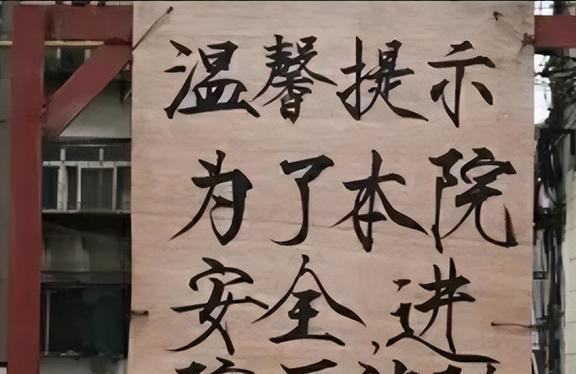 温馨提示
为了本院
安全,进